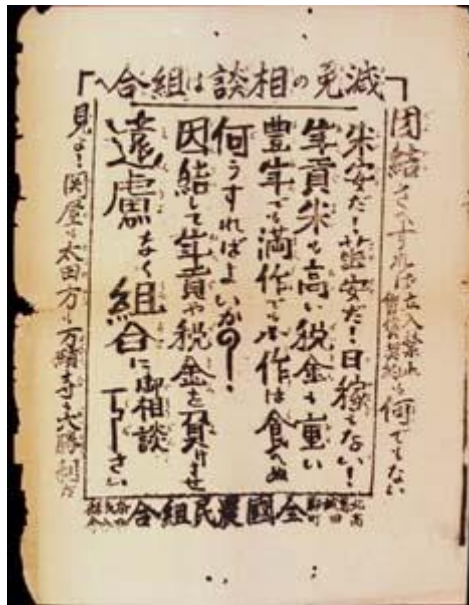 減免の相談は組合へ
団結さへすれば立入禁止
何でもない
米安だ!繭安だ!日稼もない!
年貢米も高い税金も重い
豊年でも満作でも小作は食へぬ
何うすればよいかの!
団結して年貢や税金を負けませ
遠慮なく組合に御相談下さい
見よ!関屋も太田方も万績寺も大勝利だ
全國農民組合